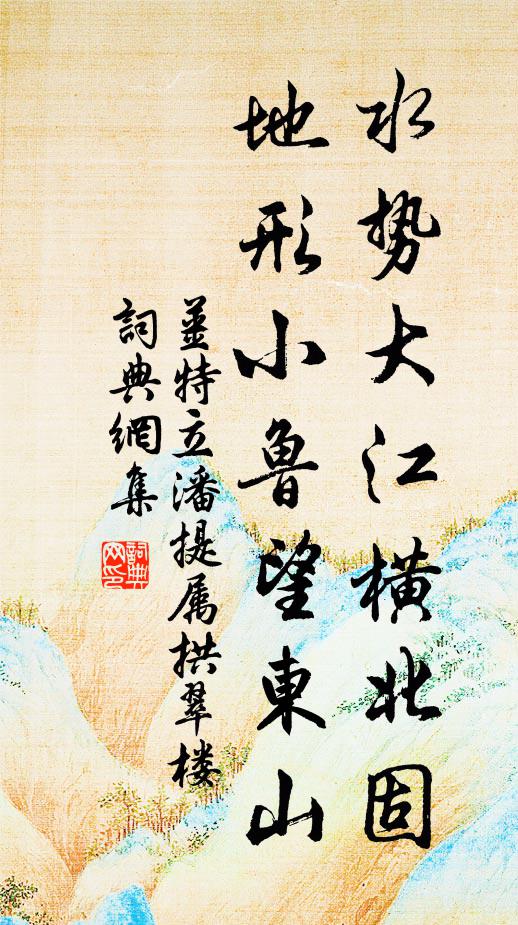 水势大江横北固
地形小魯望東山
姜特立潘提属拱翠楼
詞典網集
詞典网印